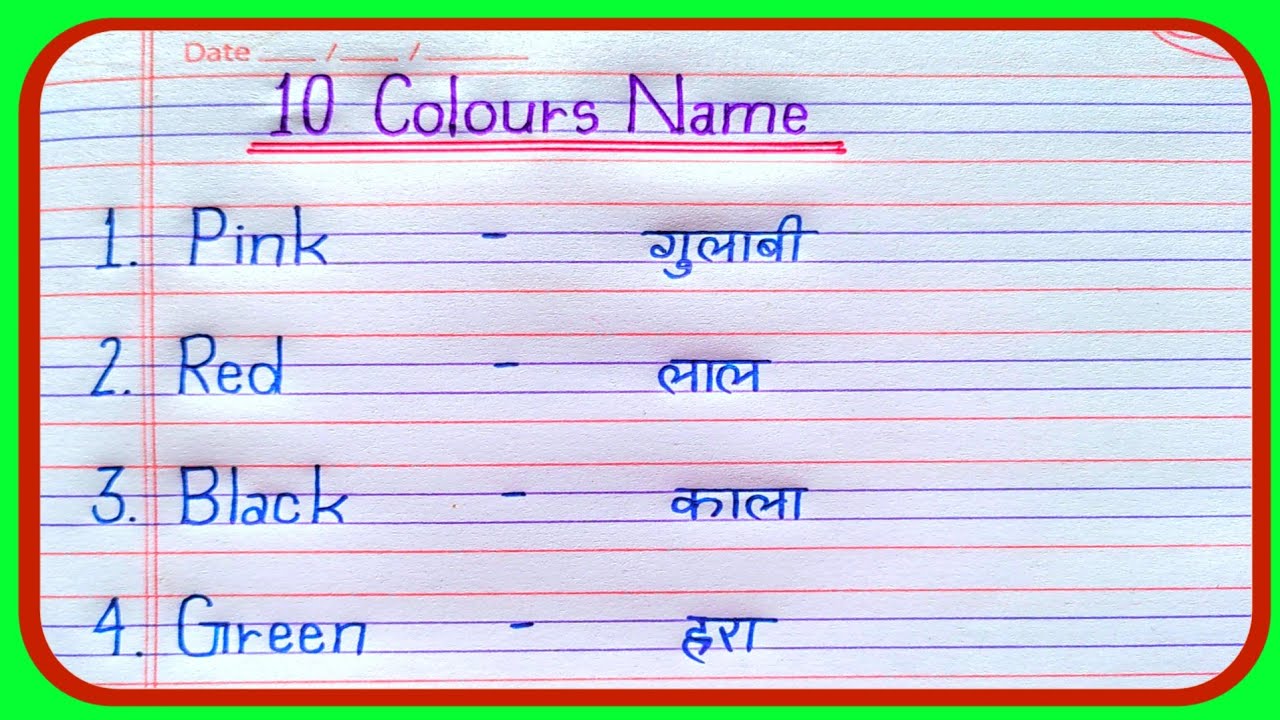 Date ___ / ___ / ______
10 Colours Name
1. Pink - गुलाबी
2. Red - लाल
3. Black - काला
4. Green - हरा